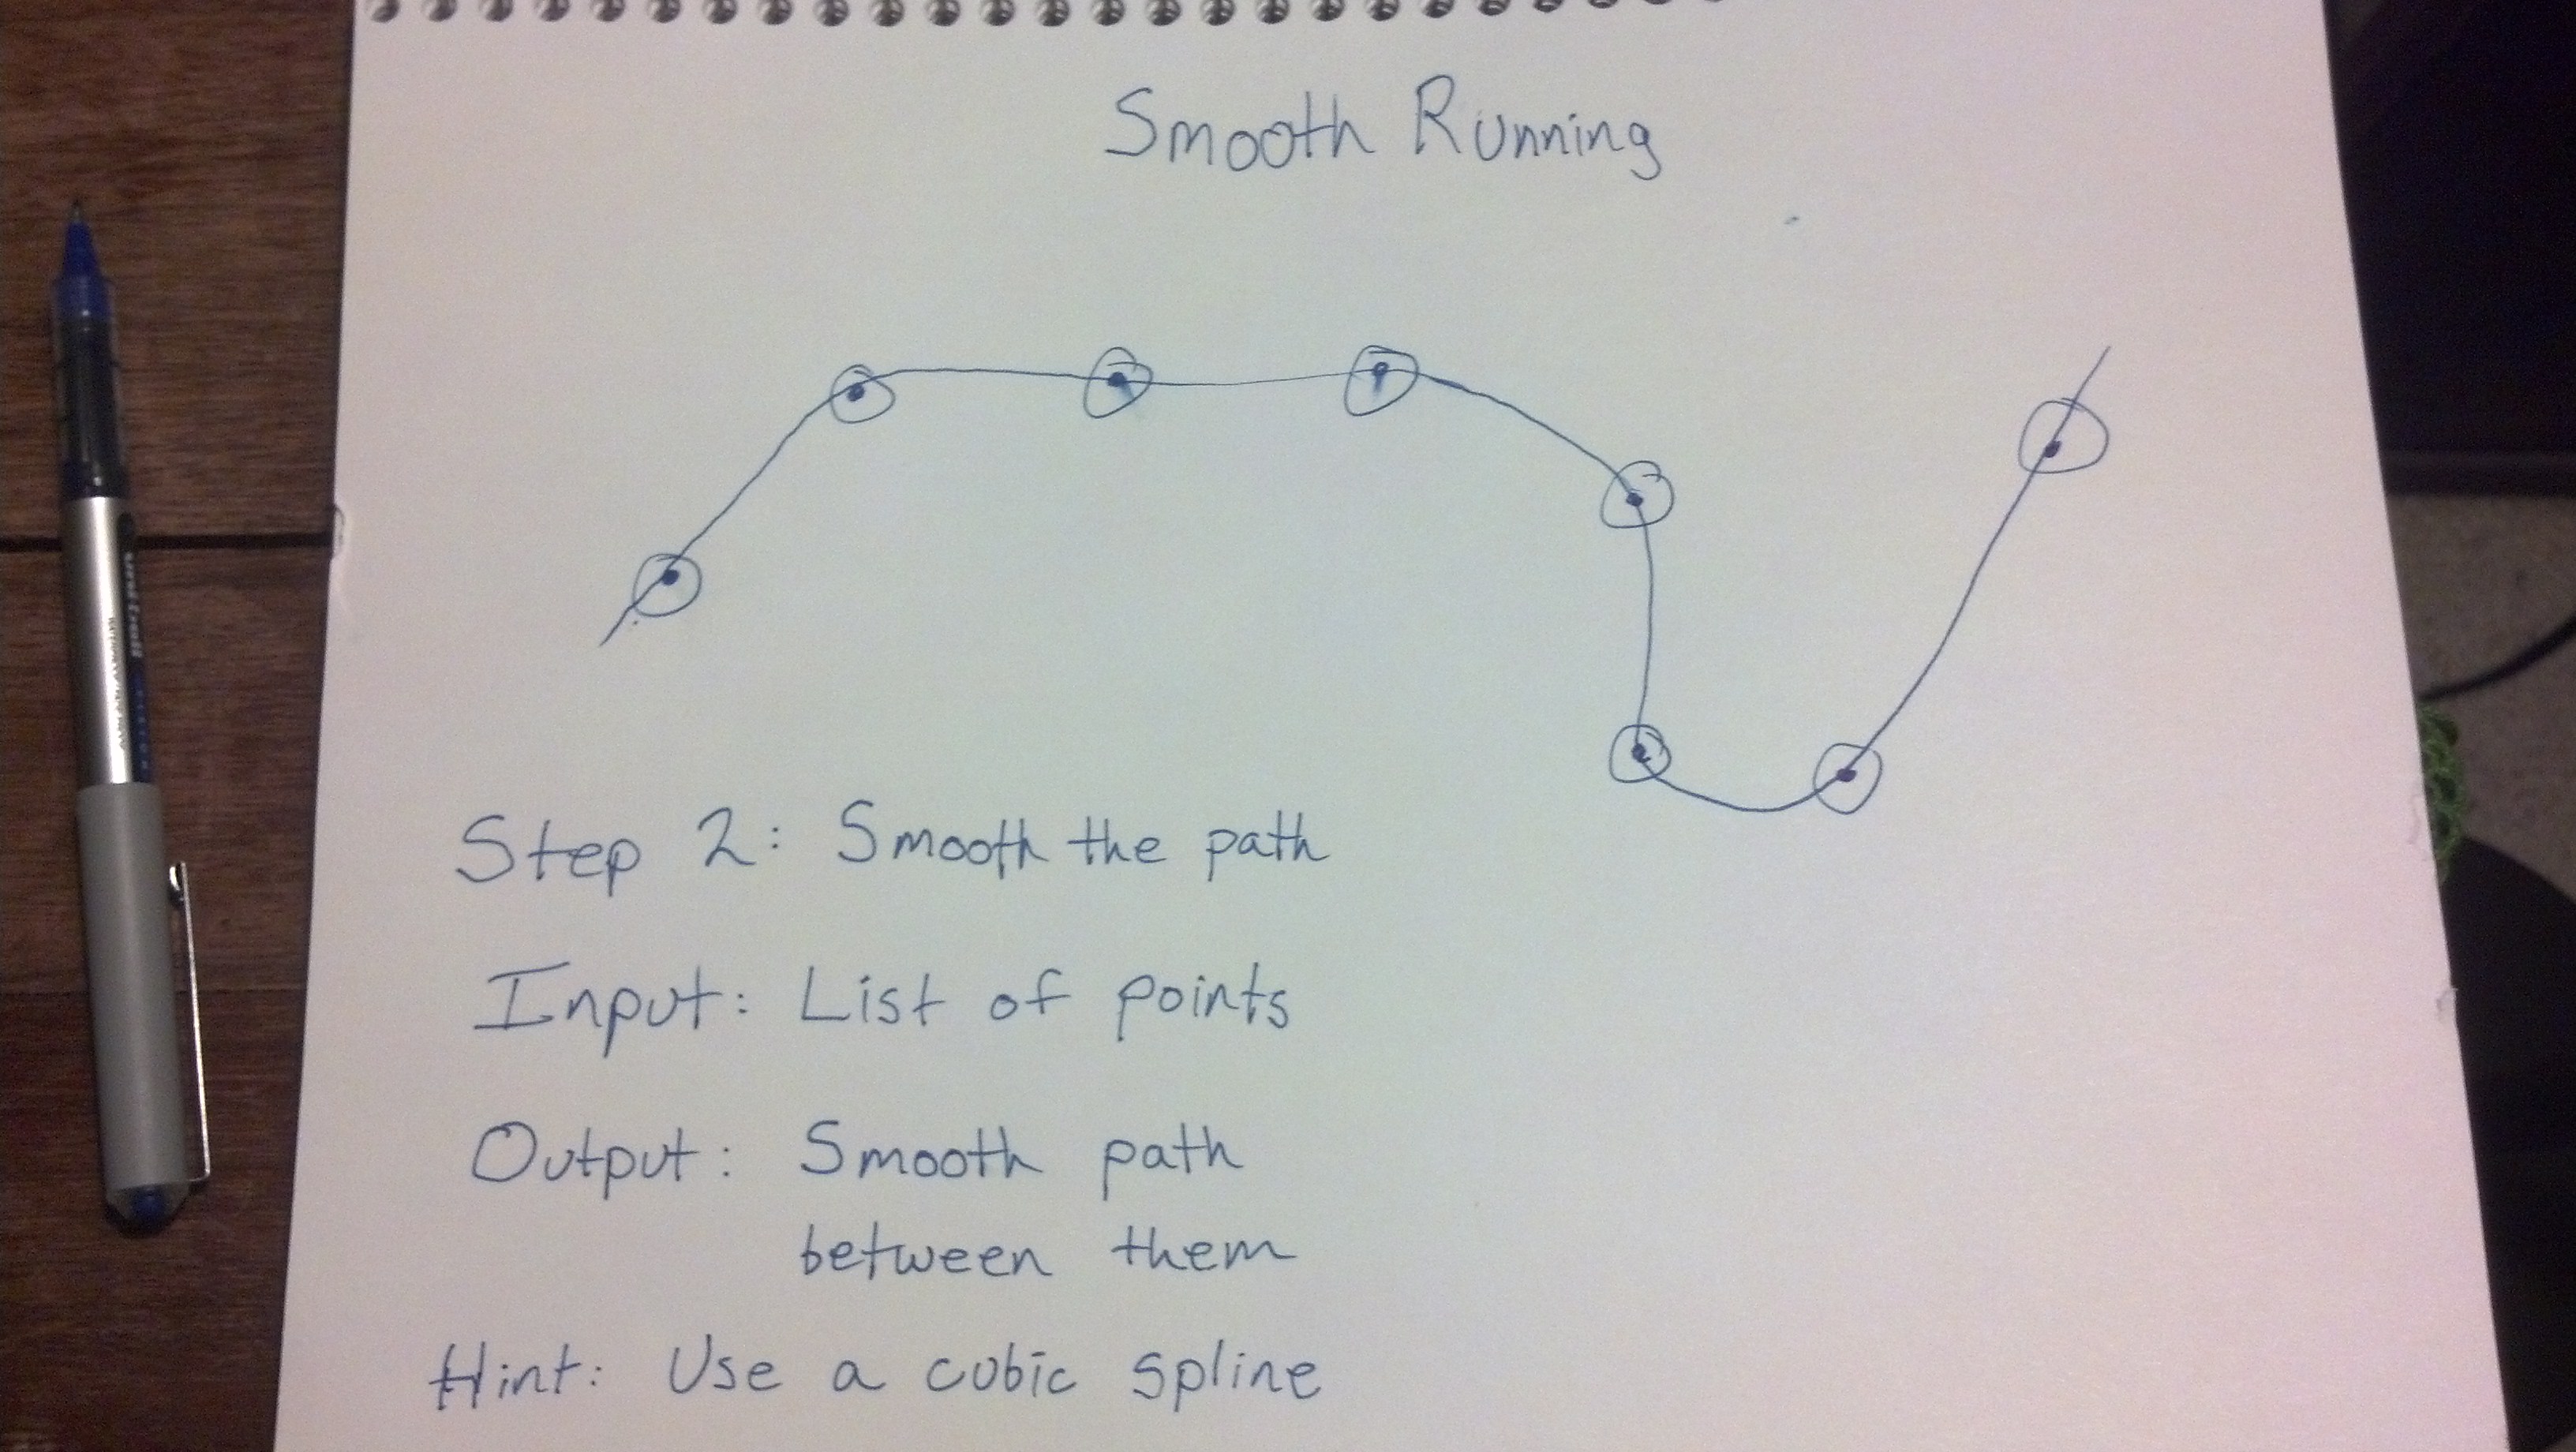 Smooth Running
Step 2: Smooth the path
Input: List of points
Output: Smooth path
between them
Hint: Use a cubic spline
uniball